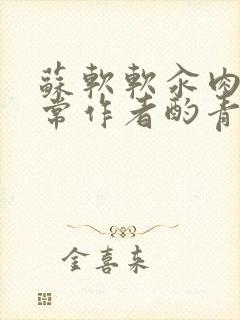 蘇軟軟汆肉
常作者酌青
金喜来